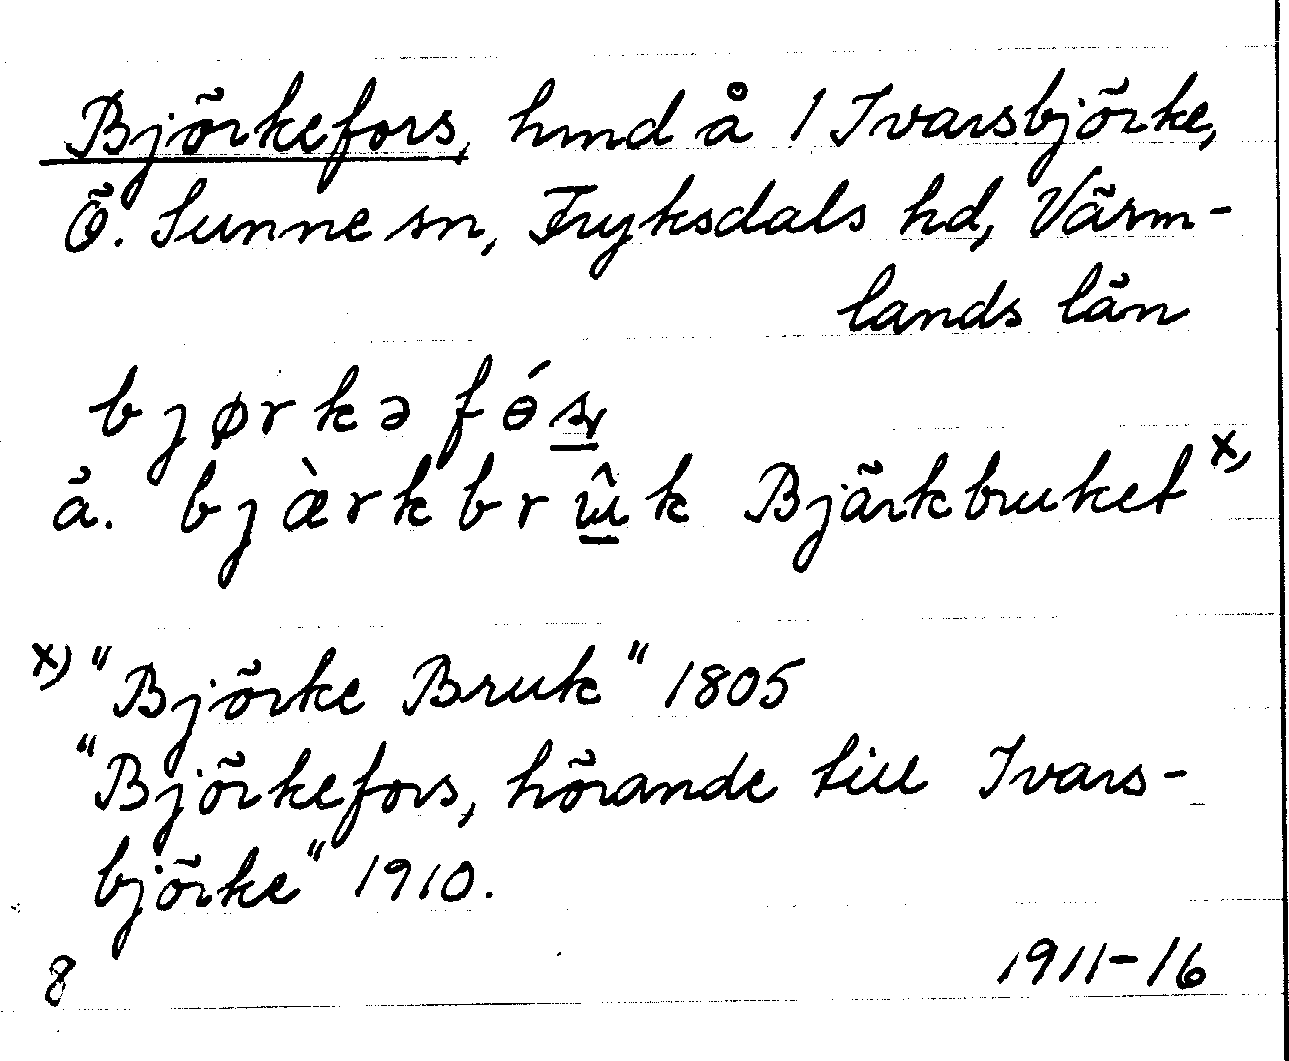 Björkefors, hmd å 1 Ivarsbjörke,
Ö. Sunne sn, Fryksdals hd, Värm-
lands län
bjørkəfɵ́s̠r
ä. bjæ̀rkbrɯ̠̂k Bjärkbruket x)
x) "Björke Bruk" 1805
"Björkefors, hörande till Ivars-
björke" 1910.
8 1911-16